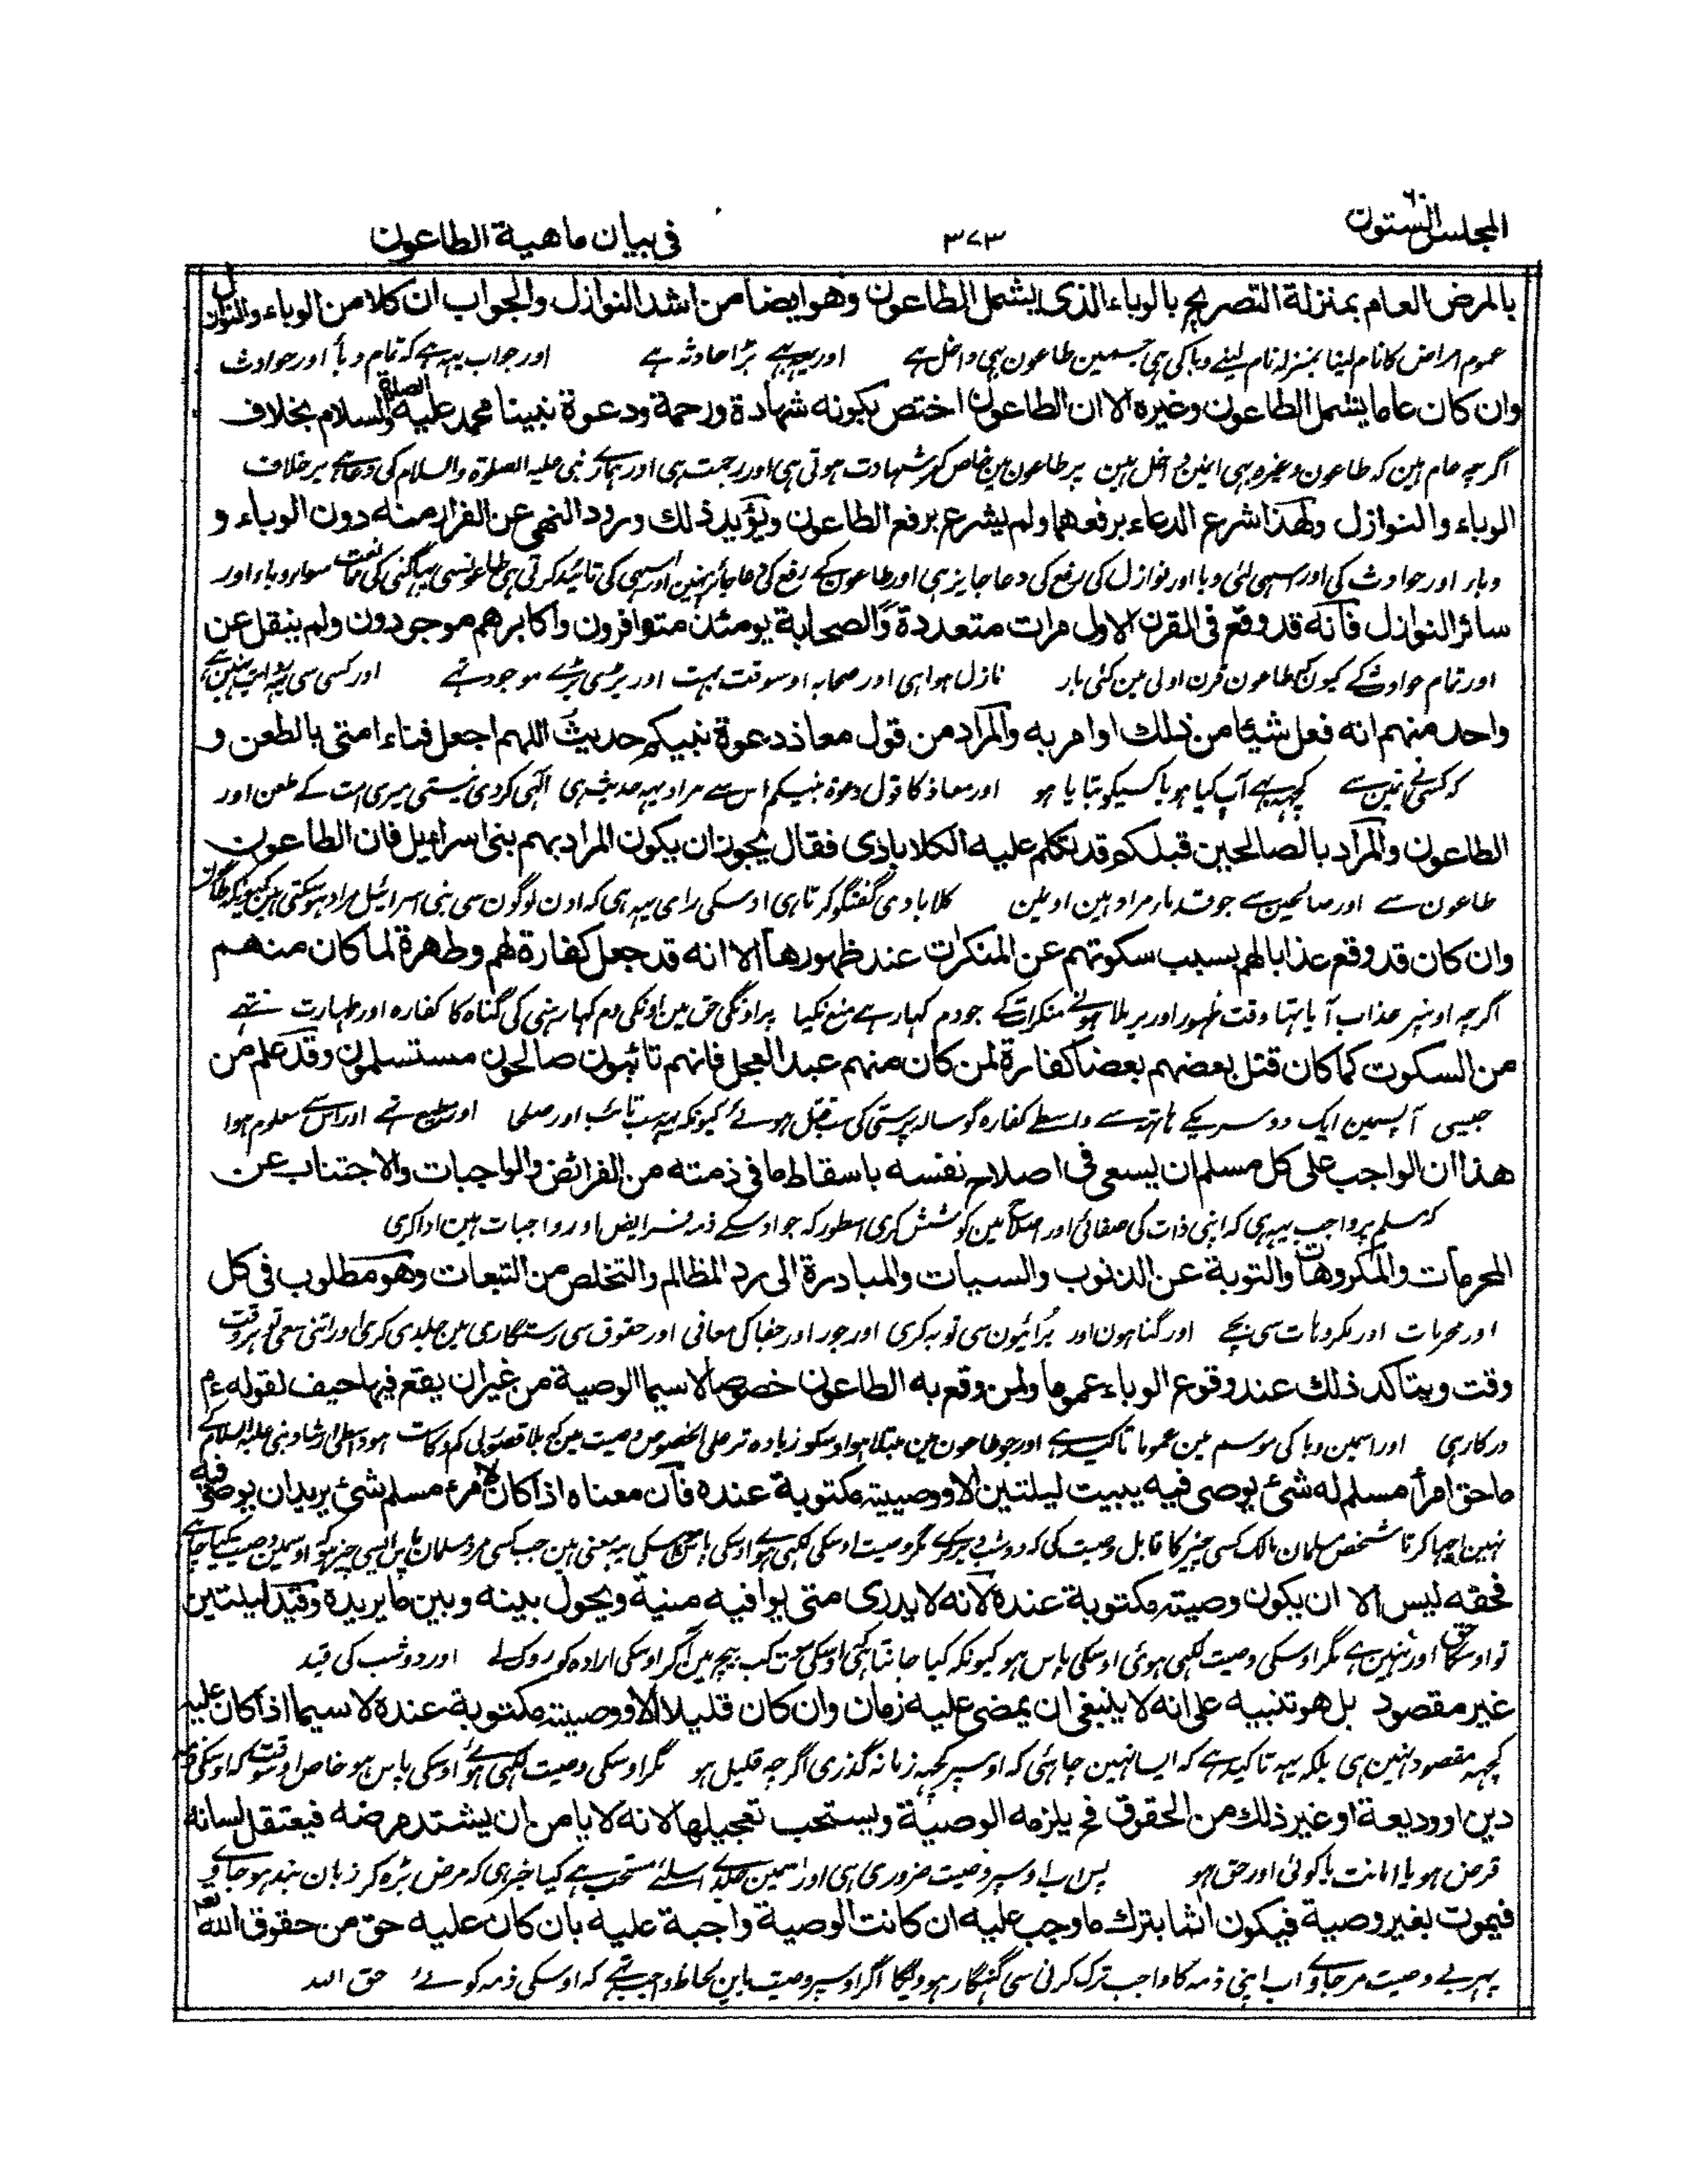 المجلس الستون ٦٠
٣٧٣
فى بيان ماهية الطاعون
بالمرض العام بمنزلة التصريح بالوباء الذى يشمل الطاعون وهو ايضا من اشد النوازل والجواب ان كلا من الوباء والنوازل
عموم امراض کا نام لینا بمنزلہ نام لینے وبا کی ہی جسمین طاعون بہی داخل ہے اور یہہ بہے بڑا حادثہ ہے اور جواب یہہ ہے کہ تمام وبأ اور حوادث
وان كان عاما يشمل الطاعون وغيره الا ان الطاعون اختص بكونه شهادة ورحمة ودعوة نبينا محمد عليه الصلوة والسلام بخلاف
اگرچہ عام ہین کہ طاعون وغیرہ بہی انمین داخل ہین پر طاعون مین خاص کر شہادت ہوتی ہی اور رحمت ہی اور ہمارے نبی علیہ الصلوٰة والسلام کی دعا ہے برخلاف
الوباء والنوازل ولهذا شرع الدعاء برفعهما ولم يشرع برفع الطاعون ويؤيد ذلك ورود النهى عن الفرار منه دون الوباء و
وبار اور حوادث کی اور اسی لئی وبا اور نوازل کی رفع کی دعا جایز ہی اور طاعون کے رفع کی دعا جائز نہین اور اسی کی تائید کرتی ہی طاعون سی بہاگنی کی ممانعت سواء وباء اور
سائر النوازل فانه قد وقع فى القرن الاول مرات متعددة والصحابة يومئذ متوافرون واكابرهم موجودون ولم ينقل عن
اور تمام حوادث کے کیونکہ طاعون قرن اولی مین کئی بار نازل ہوا ہی اور صحابہ اوسوقت بہت اور بڑی بڑے موجود تہے اور کسی سی
واحد منهم انه فعل شيئا من ذلك او امر به والمراد من قول معاذ دعوة نبيكم حديث اللهم اجعل فناء امتى بالطعن و
کہ کسی نے انمین سے کچہہ بہے آپ کیا ہو یا کسیکو بتایا ہو اور معاذ کا قول دعوة نبیکم اس سے مراد یہہ حدیث ہی الٰہی کردی نیستی میری امت کے طعن اور
الطاعون والمراد بالصالحين قبلكم قد تكلم عليه الكلاباذى فقال يجوز ان يكون المراد بهم بنى اسراءيل فان الطاعون
طاعون سے اور صالحین سے جو قبلکم مراد ہین اوملین کلاباوی گفتگو کرتا ہی اوسکی رای یہہ ہی کہ اون لوگون سی بنی اسرائیل مراد ہو سکتی ہین کیونکہ طاعون
وان كان قد وقع عذابا لهم بسبب سكوتهم عن المنكرات عند ظهورها الا انه قد جعل كفارة لهم وطهرة لما كان منهم
اگرچہ اونپر عذاب آیا تہا وقت ظہور اور برملا ہونے منکرات کے جو دم کہا رہے منع نکیا پر اونکی حق مین اونکی دم کہا رہنی کی گناہ کا کفارہ اور طہارت تہے
من السكوت كما كان قتل بعضهم بعضا كفارة لمن كان منهم عبد العجل فانهم تائبون صالحون مستسلمون وقد علم من
جیسی آپسمین ایک دوسریکے ہاتہہ سے واسطے کفارہ گوسالہ پرستی کی سب قتل ہوئے کیونکہ یہہ سب تائب اور صلحا اور مطیع تہے اور اس سے معلوم ہوا
هذا ان الواجب على كل مسلم ان يسعى فى اصلاح نفسه باسقاط ما فى ذمته من الفرائض والواجبات والاجتناب عن
کہ مسلم پر واجب یہہ ہی کہ اپنی ذات کی صفائی اور اصلاح مین کوشش کری اسطور کہ جو اوسکے ذمہ فرایض اور واجبات ہین ادا کری
المحرمات والمكروهات والتوبة عن الذنوب والسيأت والمبادرة الى رد المظالم والتخلص من التبعات وهو مطلوب فى كل
اور محرمات اور مکروہات سی بچے اور گناہون اور برُائیون سی توبہ کری اور جور اور جفا کی معافی اور حقوق سی رستگاری مین جلدی کری اور اتنی سعی تو ہر وقت
وقت ويتاكد ذلك عند وقوع الوباء عموما ولمن وقع به الطاعون خصوصا لاسيما الوصية من غير ان يقع فيها حيف لقوله عم
درکار ہی اور اسمین وبا کی موسم مین عموما تاکید ہے اور جو طاعون مین مبتلا ہوا وسکو زیادہ تر علی الخصوص وصیت مین کہ بلا قصور ہو واسطے ارشاد نبی علیہ السلام کے
ما حق امرأ مسلم له شئ يوصى فيه يبيت ليلتين الا ووصيته مكتوبة عنده فان معناه اذا كان لامرء مسلم شئ يريد ان يوصى فيه
نہین اچہا کرتا شخص مسلمان مالک کسی چیز کا قابل وصیت کی کہ دو شب بسر کرے مگر وصیت اوسکی لکہی ہوے اوسکی پاس اسکی یہ معنی ہین جب کسی مرد مسلمان
فحقه ليس الا ان يكون وصيته مكتوبة عنده لانه لا يدرى متى يوافيه منيه ويحول بينه وبين ما يريده وقيد ليلتين
تو اوسکا حق اور نہین ہے مگر اوسکی وصیت لکہی ہوئی اوسکی پاس ہو کیونکہ کیا جانتا ہی اوسکی موت کب بیچ مین آکر اوسکی ارادہ کو روک لے اور دو شب کی قید
غير مقصود بل هو تنبيه على انه لا ينبغى ان يمضى عليه زمان وان كان قليلا الا ووصيته مكتوبة عنده لا سيما اذا كان عليه
کچہہ مقصود نہین ہی بلکہ یہہ تاکید ہے کہ ایسا نہین چاہئی کہ اوسپر کچہہ زمانہ گذری اگرچہ قلیل ہو مگر اوسکی وصیت لکہی ہوئے اوسکی پاس ہو خاص اوسوقت کہ اوسکی
دين او وديعة او غير ذلك من الحقوق فح يلزمه الوصية ويستحب تعجيلها لانه لا يامن ان يشتد مرضه فيعتقل لسانه
قرض ہو یا امانت یا کوئی اور حق ہو پس اب اوسپر وصیت ضروری ہی اور اسمین جلدے اسلئے مستحب ہے کیا خبر ہی کہ مرض بڑہ کر زبان بند ہو جاوے
فيموت بغير وصية فيكون اثما بترك ما وجب عليه ان كانت الوصية واجبة عليه بان كان عليه حق من حقوق الله تعه
پہر بے وصیت مر جاوے اب اپنی ذمہ کا واجب ترک کرنی سی گنہگار ہوویگا اگر اوسپر وصیت باین لحاظ واجب تہے کہ اوسکی ذمہ کوئے حق اللہ